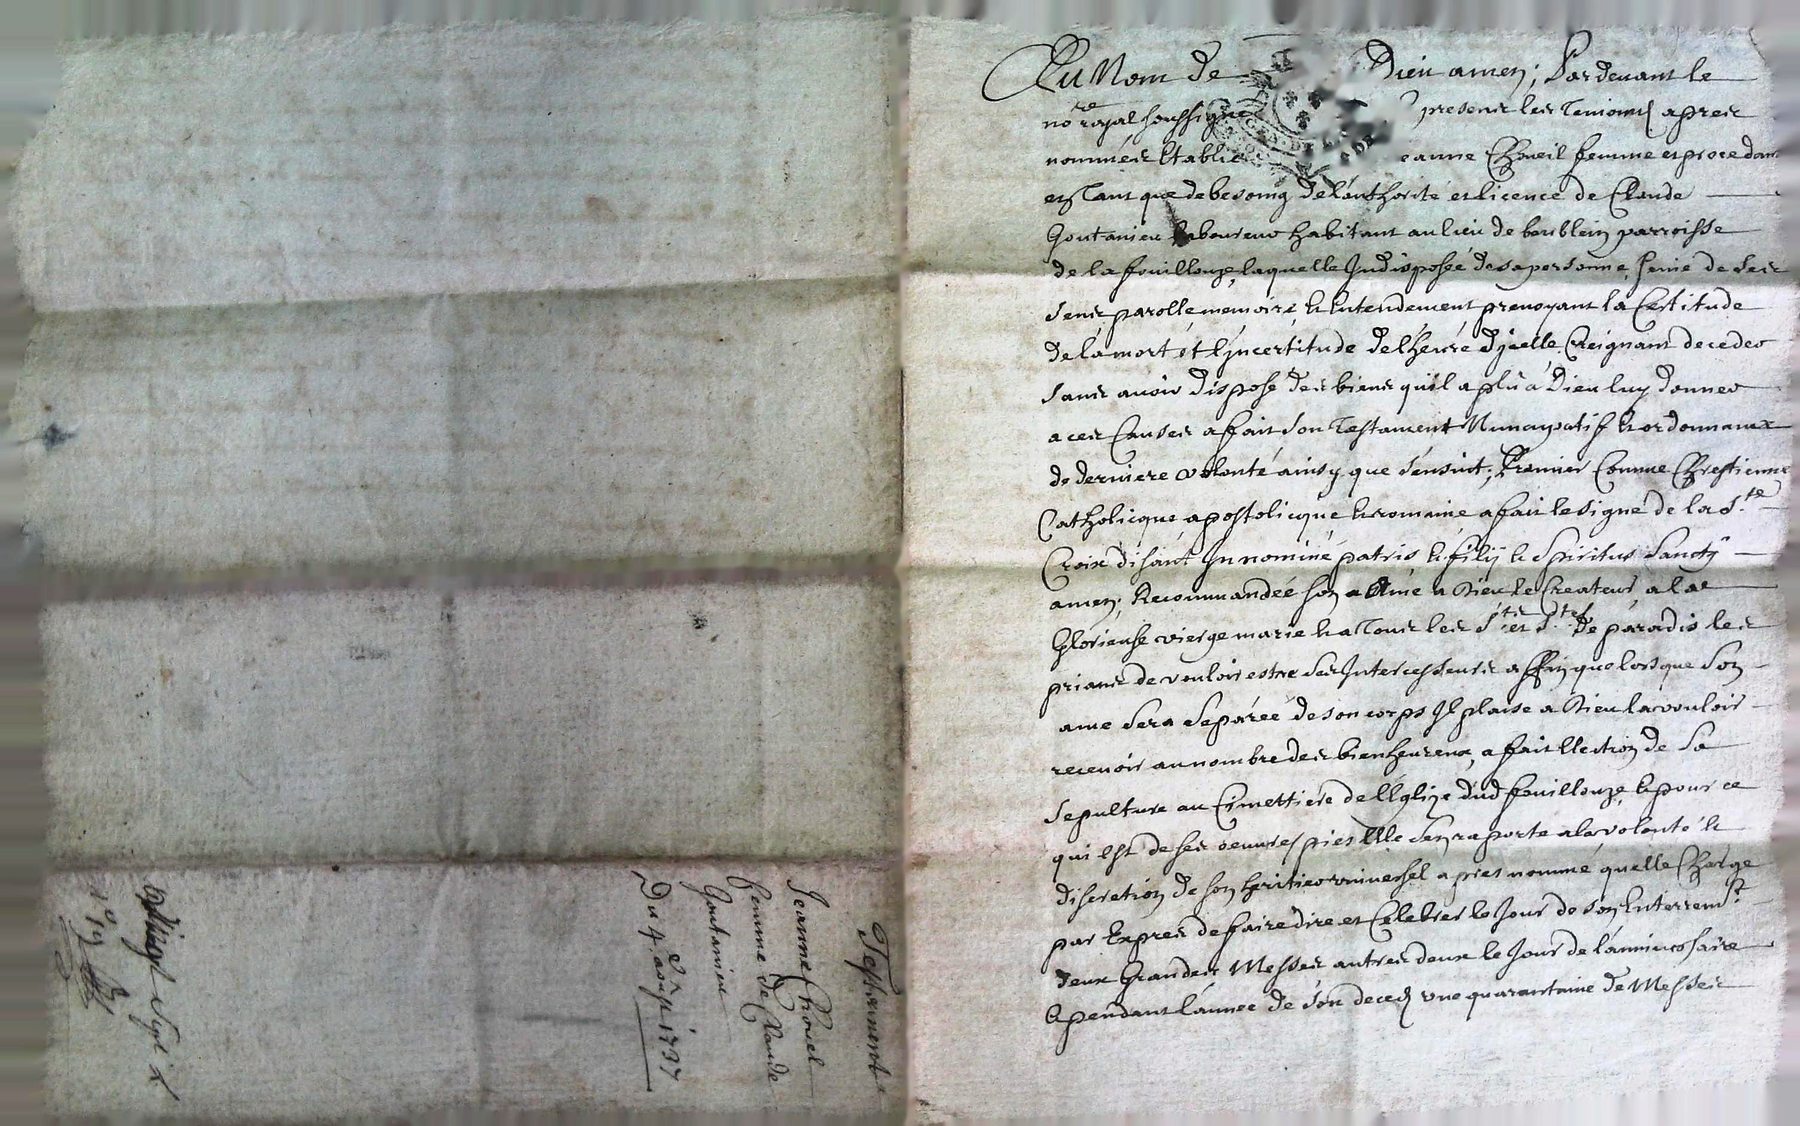 Testament
Jeanne Choueil
femme de Claude
Goutanieu
Du 4.e aoust 1737
Au Nom de Dieu amen; Pardeuant le
no.re royal soussigné presens les Temoins apres
nommés Establie eanne Choueil femme et procedant
en Tant que de besoing de l'authorité et licence de Claude
Goutanieu laboureur habitant au lieu de parroisse
de la fouillouze, laquelle Indisposée de sa personne, saine de ses
sens parolle, memoire, & Entendement preuoyant la Certitude
de la mort et l'Incertitude de l'heure d'jcelle Creignant deceder
sans auoir disposé des biens qu'il a plû a Dieu luy donner
a ces Causes a fait son Testament Nuncupatif & ordonnance
de derniere volonté ainsy que s'ensuit; Premier Comme Chrestienne
Catholicque apostolicque & romaine a fait le signe de la S.te
Croix disant In nomine patris & filij & Spiritus Sancty
amen, Recommandée son ame a Dieu le Createur, a la
Glorieuse vierge marie & a Tous les S.ts et S.tes de paradis les
priant de vouloir estre ses Intercesseurs affin que lors que son
ame sera separée de son corps Il plaise a Dieu la vouloir
receuoir au nombre des bienheureux, a fait Election de sa
sepulture au Cimettiere de l'Eglize dud fouillouze, & pour ce
qui Est de ses oeuures pies Elle s'en raporte a la volonté &
discretion de son heritier vniuersel apres nommé quelle Charge
par Expres de faire dire et Celebrer le Jour de son Enterrem.t
deux Grandes Messes autres deux le Jour de l'anniuersaire
& pendant l'annee de son deced vne quarantaine de Messes